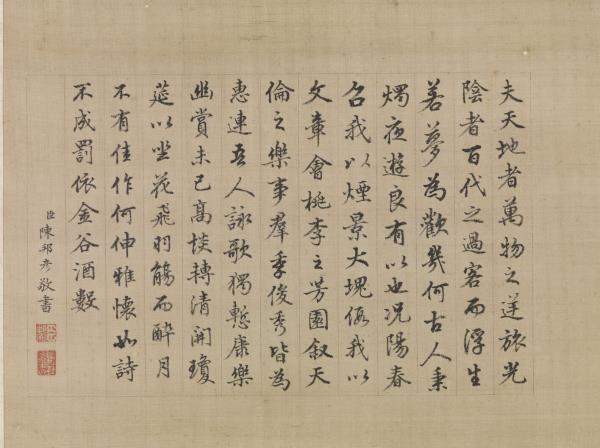 夫天地者萬物之逆旅光
陰者百代之過客而浮生
若夢為歡幾何古人秉
燭夜遊良有以也况陽春
召我以煙景大塊假我以
文章會桃李之芳園叙天
倫之樂事羣季俊秀皆為
惠連吾人詠歌獨慙康樂
幽賞未已高談轉清開瓊
筵以坐花飛羽觴而醉月
不有佳作何伸雅懷如詩
不成罰依金谷酒數
臣陳邦彥敬書